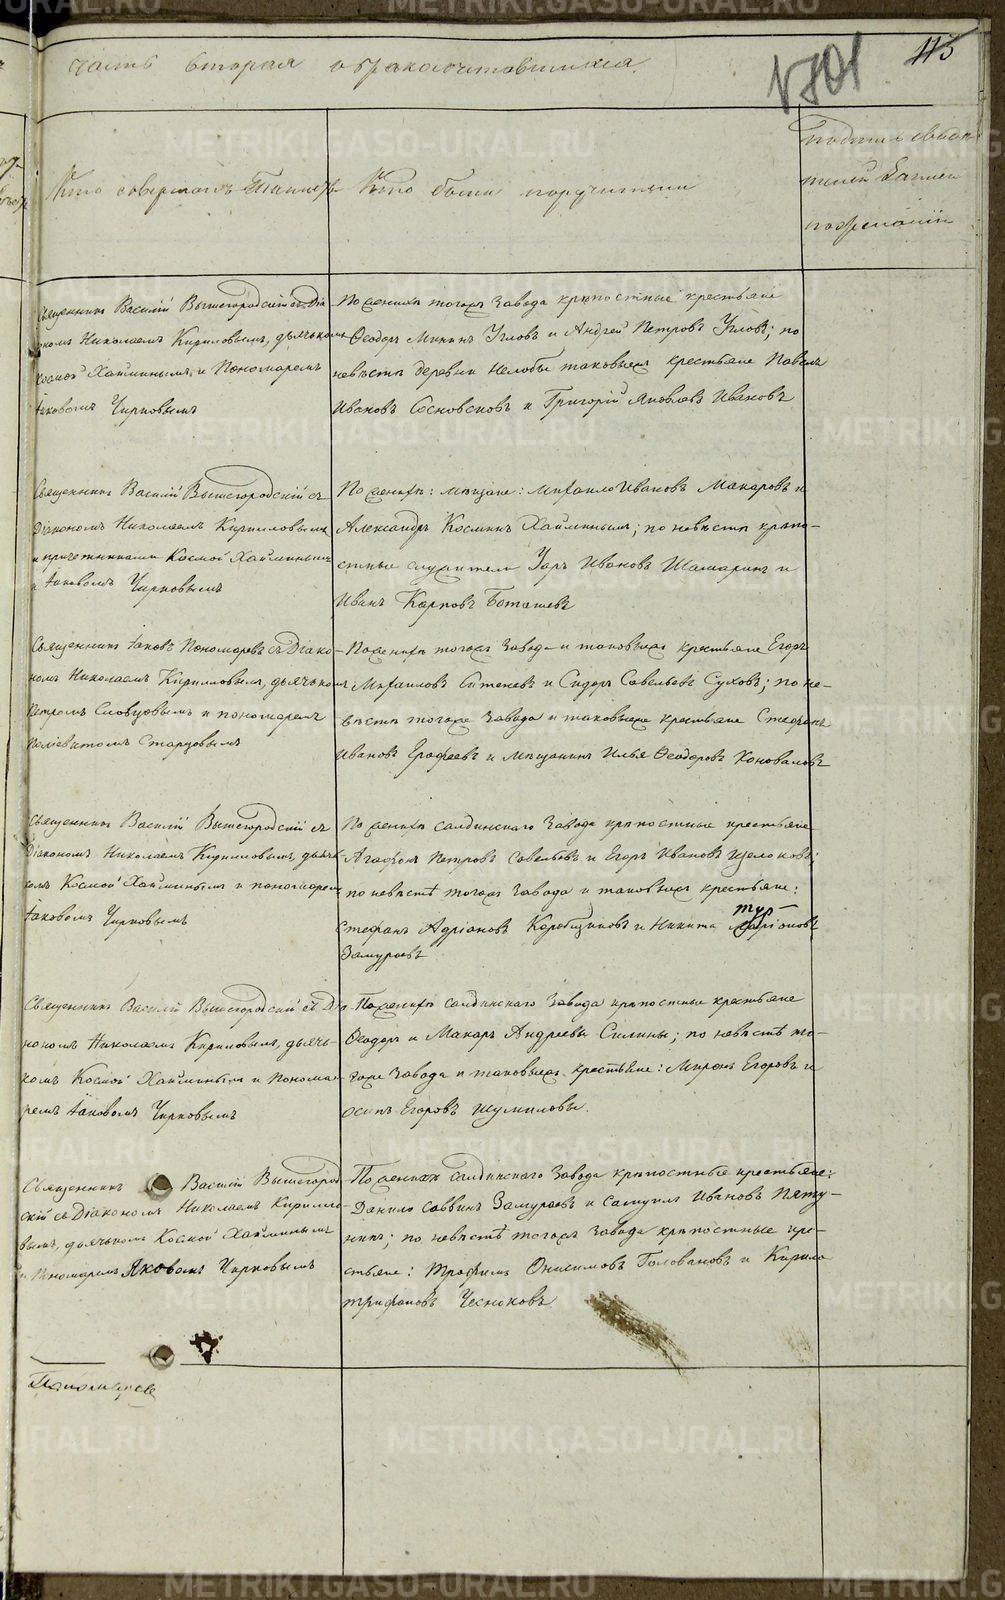 115
часть вторая о бракосочетавшихся.
Кто совершалъ Таинство
Кто были поручители
подпись свидѣ
телей записи
по желанію
Священникъ Василій Вышегородскій съ Діа-
кономъ Николаемъ Кириловымъ, дьячкомъ
Космой Хайминымъ, и Пономаремъ
Іаковомъ Чирковымъ
По женихѣ тогожъ Завода крѣпостные крестьяне
Ѳеодоръ Мининъ Угловъ и Андрей Петровъ Угловъ; по
невѣстѣ деревни Нелобы таковыежъ крестьяне Павелъ
Ивановъ Сосновсковъ и Григорій Яковлевъ Ивановъ
Священникъ Василій Вышегородскій съ
Діакономъ Николаемъ Кириловымъ
и причетниками Космой Хайминымъ
и Іаковомъ Чирковымъ
По женихѣ: мѣщане: Михаило Ивановъ Макаровъ и
Александръ Косминъ Хайминъ; по невѣстѣ крѣпо-
стные служители Уаръ Ивановъ Шамаринъ и
Иванъ Карповъ Боташевъ
Священникъ Іаковъ Пономаревъ съ Діако-
номъ Николаемъ Кириловымъ, дьячкомъ
Петромъ Словцовымъ и пономаремъ
Полиевктомъ Старцовымъ
По женихѣ тогожъ Завода и таковыежъ крестьяне Егоръ
Михаиловъ Ситеневъ и Сидоръ Савельевъ Суховъ; по не-
вѣстѣ тогоже завода и таковыеже крестьяне Стефанъ
Ивановъ Ерофеевъ и Мѣщанинъ Илья Ѳеодоровъ Коноваловъ
Священникъ Василій Вышегородскій съ
Діакономъ Николаемъ Кириловымъ, дьяч-
комъ Космой Хайминымъ и пономаремъ
Іаковомъ Чирковымъ
По женихѣ салдинскаго Завода крѣпостные крестьяне
Агафонъ Петровъ Савельевъ и Егоръ Ивановъ Щелоковъ;
по невѣстѣ тогожъ Завода и таковыежъ крестьяне:
Стефанъ Адріановъ Коробщиковъ и Никита
Замураевъ
Священникъ Василій Вышегородскій съ Діа-
кономъ Николаемъ Кириловымъ, дьяч-
комъ Космой Хайминымъ и Понома-
ремъ Іаковомъ Чирковымъ
По женихѣ салдинскаго Завода крѣпостные крестьяне
Ѳеодоръ и Макаръ Андреевы Силины; по невѣстѣ то-
гоже завода и таковыежъ крестьяне: Миронъ Егоровъ и
Осипъ Егоровъ Шумиловы.
Священникъ Василій Вышегород-
скій съ Діакономъ Николаемъ Кирилло-
вымъ, дьячкомъ Космой Хайминымъ
и Пономаремъ Яковомъ Чирковымъ
По женихѣ Салдинскаго Завода крѣпостные крестьяне:
Данило Саввинъ Замураевъ и Самуилъ Ивановъ Пяту-
нинъ; по невѣстѣ тогожъ Завода крѣпостные кре-
стьяне: Трофимъ Онисимовъ Головановъ и Кирило
Трифоновъ Чесноковъ.
Пономаревъ
METRIKI.GASO-URAL.RU